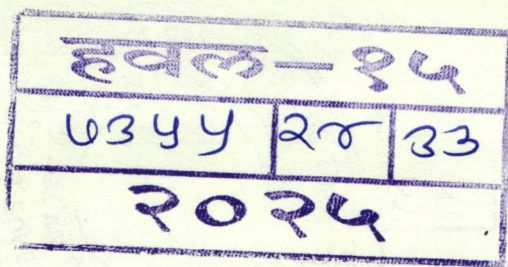 हवल-१५
७३५५ २४ ३३
२०२५